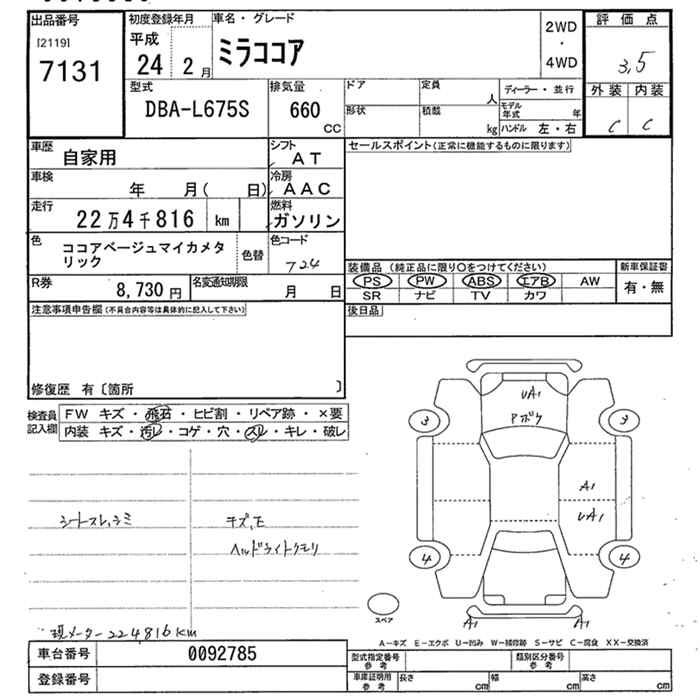 出品番号
[2119]
7131
初度登録年月
平成
24 2 月
車名・グレード
ミラココア
2WD
・
4WD
評価点
3,5
外装 内装
C C
型式
DBA-L675S
排気量
660
CC
ドア
定員
人
形状
積載
kg
ディーラー・並行
モデル年式 年
ハンドル 左・右
車歴
自家用
シフト
AT
セールスポイント(正常に機能するものに限ります)
車検
年 月( 日)
冷房
AAC
走行
22万4千816 km
燃料
ガソリン
色
ココアベージュマイカメタ
リック
色替
色コード
724
装備品 (純正品に限り○をつけてください)
PS PW ABS エアB AW
SR ナビ TV カワ
新車保証書
有・無
R券
8,730 円
名変通知期限
月 日
後日品
注意事項申告欄(不具合内容等は具体的に記入して下さい)
修復歴 有〔箇所 〕
検査員
記入欄
FW キズ・飛石・ヒビ割・リペア跡・×要
内装 キズ・汚レ・コゲ・穴・スレ・キレ・破レ
シートスレ,シミ
キズ,エ
ヘルドライトクモリ
現メーター224816km
UA1
Pボケ
3
3
A1
UA1
4
4
スペア
A1
A1
A-キズ E-エクボ U-凹み W-補修跡 S-サビ C-腐食 XX-交換済
車台番号
0092785
登録番号
型式指定番号
参考
類別区分番号
参考
車庫証明用
参考
長さ cm
幅 cm
高さ cm